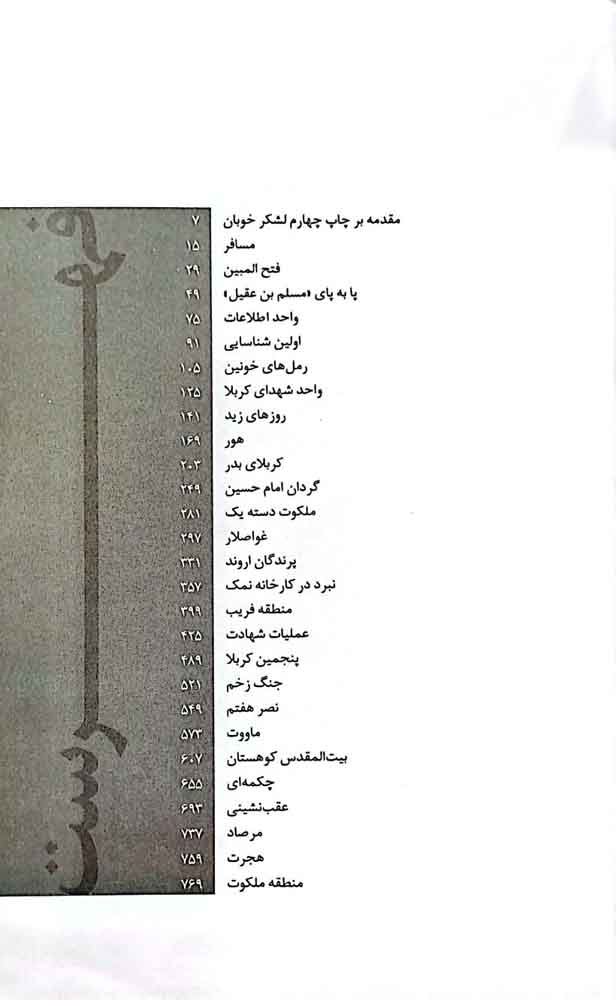 فهرست
مقدمه بر چاپ چهارم لشکر خوبان ۷
مسافر ۱۵
فتح المبین ۲۹
پا به پای «مسلم بن عقیل» ۴۹
واحد اطلاعات ۷۵
اولین شناسایی ۹۱
رمل‌های خونین ۱۰۵
واحد شهدای کربلا ۱۲۵
روزهای زید ۱۴۱
هور ۱۶۹
کربلای بدر ۲۰۳
گردان امام حسین ۲۴۹
ملکوت دسته یک ۲۸۱
غواصلار ۲۹۷
پرندگان اروند ۳۳۱
نبرد در کارخانه نمک ۳۵۷
منطقه فریب ۳۹۹
عملیات شهادت ۴۲۵
پنجمین کربلا ۴۸۹
جنگ زخم ۵۲۱
نصر هفتم ۵۴۹
ماووت ۵۷۳
بیت‌المقدس کوهستان ۶۰۷
چکمه‌ای ۶۵۵
عقب‌نشینی ۶۹۳
مرصاد ۷۳۷
هجرت ۷۵۹
منطقه ملکوت ۷۶۹